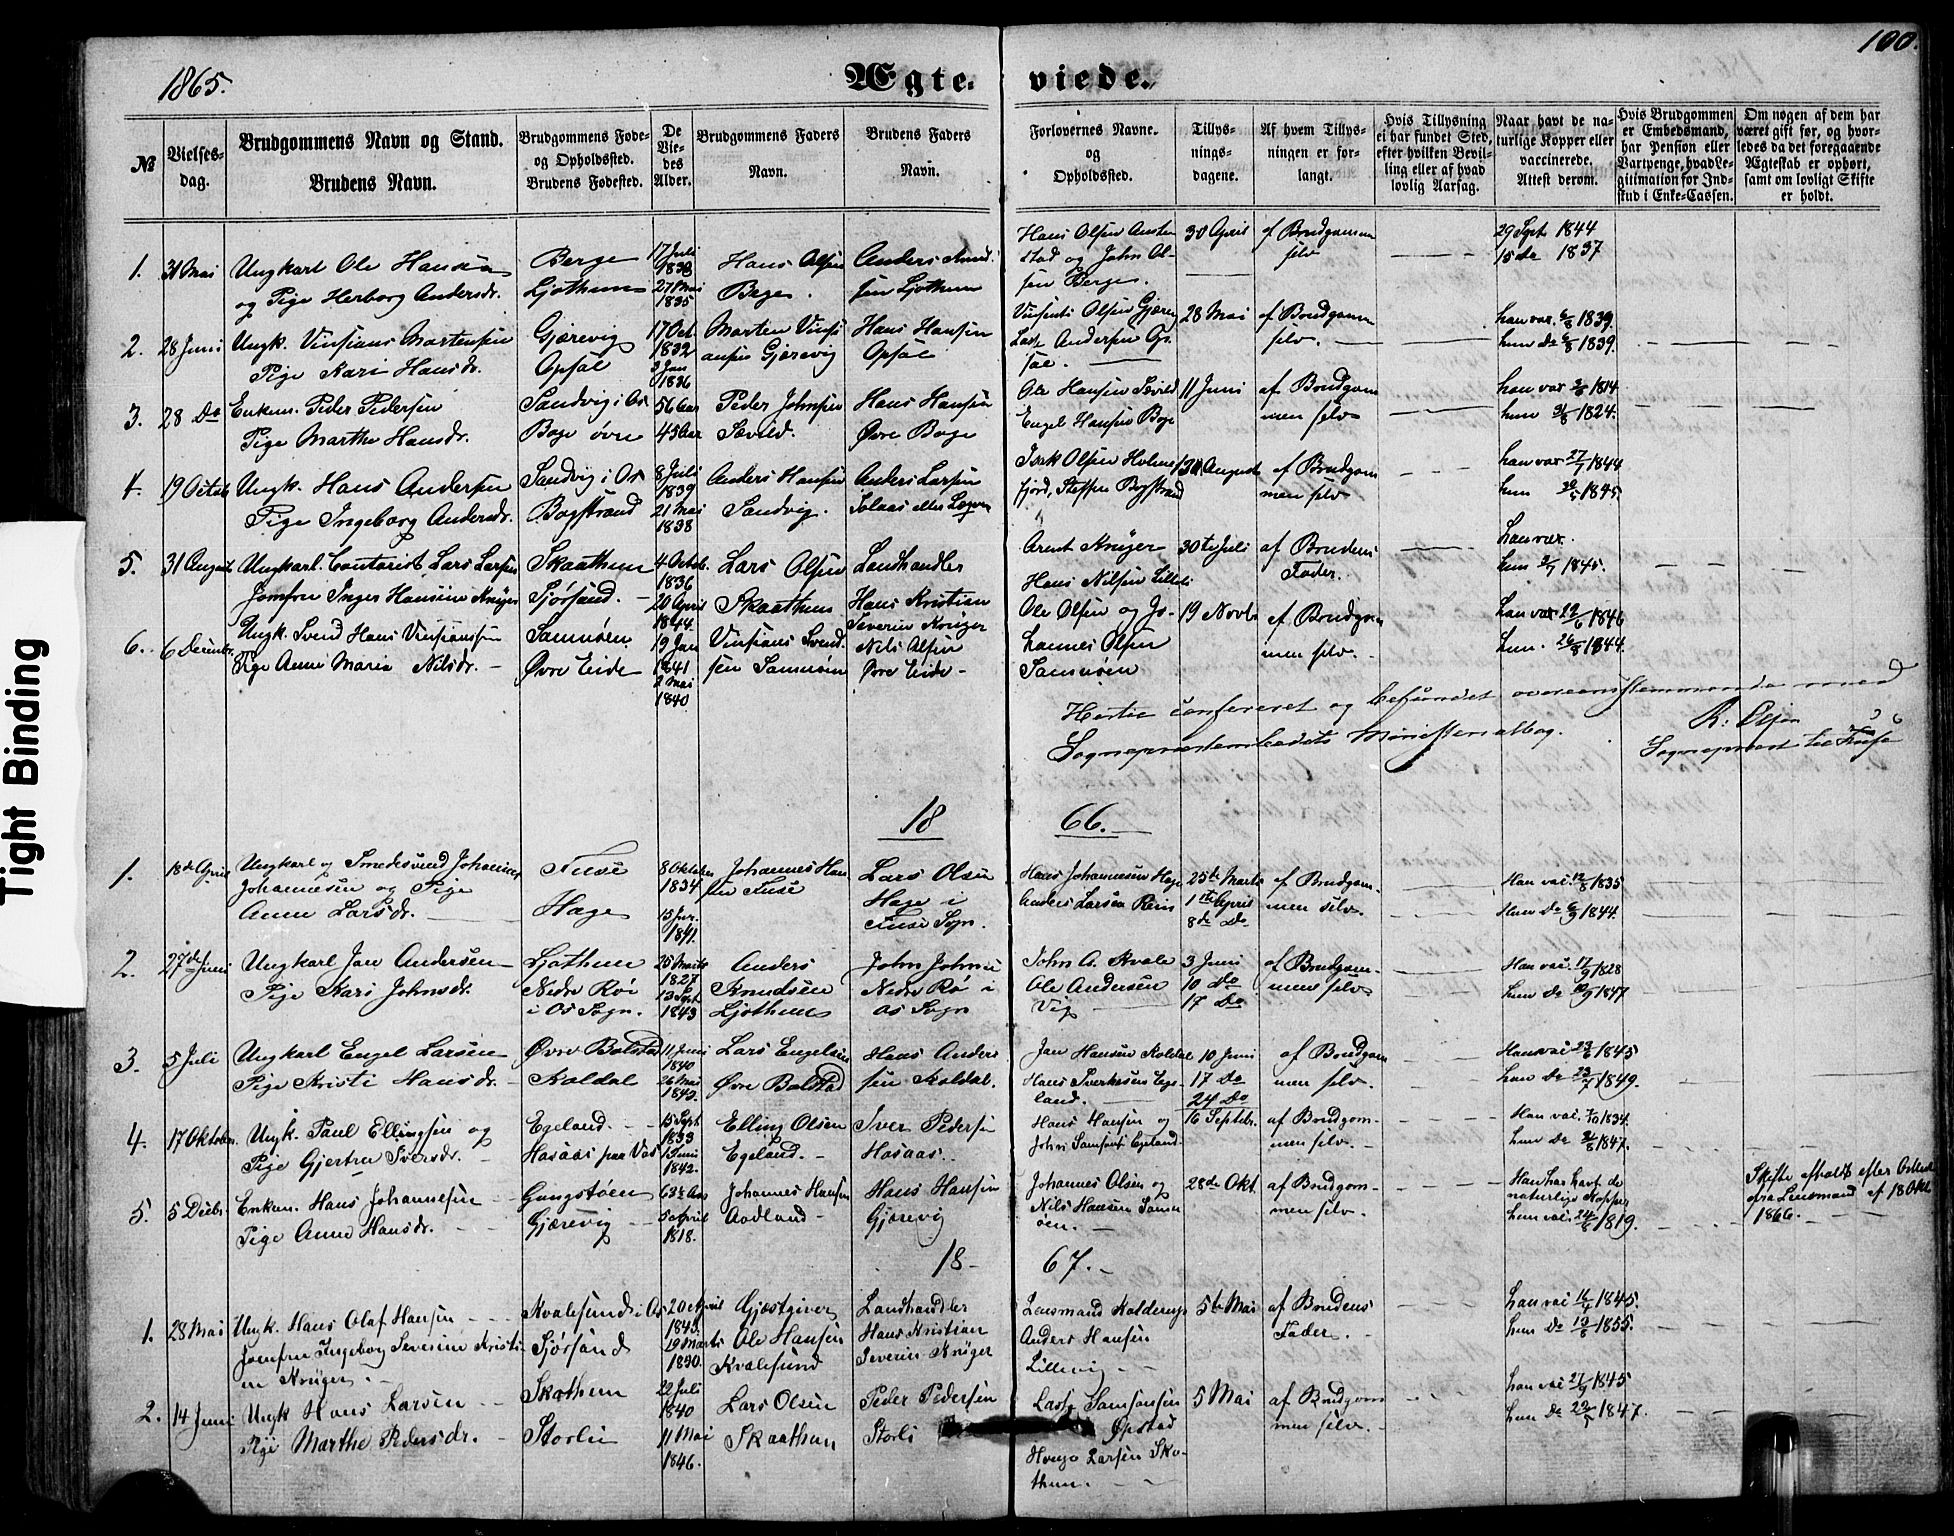 100.
1865.
Ægte- viede.
№
Vielses-
dag.
Brudgommens Navn og Stand.
Brudens Navn.
Brudgommens Føde-
og Opholdssted.
Brudens Fødested.
De
Vie-
des
Alder.
Brudgommens Faders
Navn.
Brudens Faders
Navn.
Forlovernes Navne.
og
Opholdssted.
Tillys-
nings-
dagene.
Af hvem Tillys-
ningen er for-
langt.
Hvis Tillysning
ei har fundet Sted,
efter hvilken Bevil-
ling eller af hvad
lovlig Aarsag.
Naar havt de na-
turlige Kopper eller
vaccinerede.
Attest derom.
Hvis Brudgommen
er Embedsmand,
har Pension eller
Vartpenge, hvad Le-
gitimation for Ind-
skud i Enke-Cassen.
Om nogen af dem har
været gift før, og hvor-
ledes da det foregaaende
Ægteskab er ophørt,
samt om lovligt Skifte
er holdt.
1. 31 Mai Ungkarl Ole Hansen
og Pige Herborg Andersdr.
Berge
Ljothum
17 Juli
1838
27 Mai
1835
Hans Olsen
Berge.
Anders Knud-
sen Ljothum
Hans Olsen
stad og John Ol-
sen Berge.
30 April
af Brudgommen
selv
29 Sept 1844
15 Do 1837
2. 28 Juni Ungk. Vinsians Martensen
Pige Kari Hansdr.
Gjærevig
Opsal
17 Oct.
1832
3 Jan
1836
Marten Vinsi
ansen Gjærevig
Hans Hansen
Opsal
Vinsents Olsen Gjærevig
Lasse Andersen Op-
sal.
28 Mai
af Brudgommen
selv.
han vac. 6/8 1839.
hun Do 6/8 1839.
3. 28 Do Enkem. Peder Pedersen
Pige Marthe Hansdr.
Sandvig i Os
Boge øvre
56 Aar
45 Aar
Peder Johnsen
Sævild.
Hans Hansen
Øvre Boge
Ole Hansen Sævild
Engel Hansen Boge
11 Juni
af Brudgom
men selv
han vac 1814.
hun 1824.
4. 19 Octob Ungk. Hans Andersen
Pige Ingeborg Andersdr.
Sandvig i Os
Bogstrand
8 Juli
1839
21 Mai
1838
Anders Hansen
Sandvig.
Anders Larsen
Solaas eller
Isak Olsen Holme
fjord, Steffen Bogstrand
August
af Brudgom
men selv
han vac 27/7 1844
hun 30/5 1845.
5. 31 August Ungkarl Contorist Lars Larsen
Jomfru Inger Hansine Krüger
Skaathum
Sjørsand.
4 Octob.
1836
20 April
1844.
Lars Olsen
Skaathum
Landhandler
Hans Kristian
Severin Krüger
Arent Krüger
Hans Nilsen
30te Juli
af Brudens
Fader.
han vac.
hun 1845.
6. 6 December Ungk. Svend Hans Vinsiansen
Pige Anne Maria Nilsdr.
Samnøen
Øvre Eide
19 Jan
1841
2 Mai
1840.
Vinsians Svend-
sen Samnøen
Nils Olsen
Øvre Eide
Ole Olsen og Jo-
hannes Olsen
Samnøen
19 Novb.
af Brudgom
men selv.
han vac 22/6 1846
hun. 26/8 1844.
confereret og befundet overeensstemmende med
Sogneprestembedets Ministerialbog.
R: Olsen
Sogneprest til Fuse
18 66.
1. 18de April Ungkarl og Smedesvend Johannes
Johannesen og Pige
Anne Larsdr.
Fuse
Hage
8 Oktober
1834
13 Jan.
1841.
Johannes Han
sen Fuse
Lars Olsen
Hage i
Fuse Sogn.
Hans Johannesen Hage
Anders Larsen Reim
25de Marts
1ste April
8de Do
af Brudgom-
men selv.
Han vac. 12/8 1835
Hun Do 6/9 1844.
2. 27de Juni Ungkarl Jan Andersen
Pige Kari Johnsdr.
Ljothum
Nedre Røi
i Os Sogn.
25 Marts
1827
13 Sept
1843
Anders
Knudsen
Ljothum
John Johnsen
Nedre Rø i
Os Sogn
John A. Kvale
Ole Andersen
Vig
3 Juni
10 Do
17 Do
af Brudgom-
men selv.
Han vac. 17/9 1828
hun Do 10/9 1847.
3. 5 Juli Ungkarl Engel Larsen
Pige Kristi Hansdr.
Øvre Bolstad
Koldal
11 Juni
1840
26 Mai
1840.
Lars Engelsen
Øvre Bolstad
Hans Anders
sen Koldal.
Jan Hansen Koldal
Hans Sverkesen Ege-
land.
10 Juni
17 Do
24 Do
af Brudgom
men selv.
Han vac 23/6 1845
hun Do 23/7 1849.
4. 17 Oktober. Ungk. Paul Ellingsen og
Pige Gjertru Iversdr.
Egeland.
Hosaas paa Vos
15 Sept
1833
1 Juni
1842.
Elling Olsen
Egeland.
Iver Pedersen
Hosaas.
Hans Hansen og
John Samsons Egeland.
16 Septebr.
af Brudgom-
men selv.
Han vac. 7/10 1834.
hun Do 1847.
5. 5 Decbr. Enkem. Hans Johannesen
Pige Anne Hansdr.
Gungstøen
Gjærevig
63½ Aar
5 April
1818.
Johannes Hansen
Aadland
Hans Hansen
Gjærevig
Johannes Olsen og
Nils Hansen Samn
øen.
28de Okt.
af Brudgom-
men selv.
Han har havt de
naturlige Kopper
hun vac. 24/8 1819.
Skifte afholdt efter
fra Lensmand af 18 Okt
1866.
18 67.
1. 28 Mai Ungk. Hans Olaf Hansen
Jomfru Ingeborg Severine Kristi-
ne Krüger.
Kvalesund i Os
Sjørsand
20 April
1843.
19 Marts
1850.
Gjæstgiver
Ole Hansen
Kvalesund
Landhandler
Hans Kristian
Severin Krüger
Lensmand Kolderup
Anders Hansen
Lillevig
5te Mai
af Brudens
Fader.
han vac 16/4 1845.
hun Do 13/8 1855.
2. 14 Juni Ungk Hans Larsen
Pige Marthe Pedersdr.
Skothum
Storlie
22 Juli
1840
11 Mai
1846.
Lars Olsen
Skaathum
Peder Pedersen
Storli
Lasse Samsonsen
Opstad
Larsen Sko-
thum.
5 Mai
af Brudgom
men selv.
han vac 27/9 1845
hun Do 22/5 1847.
Tight Binding